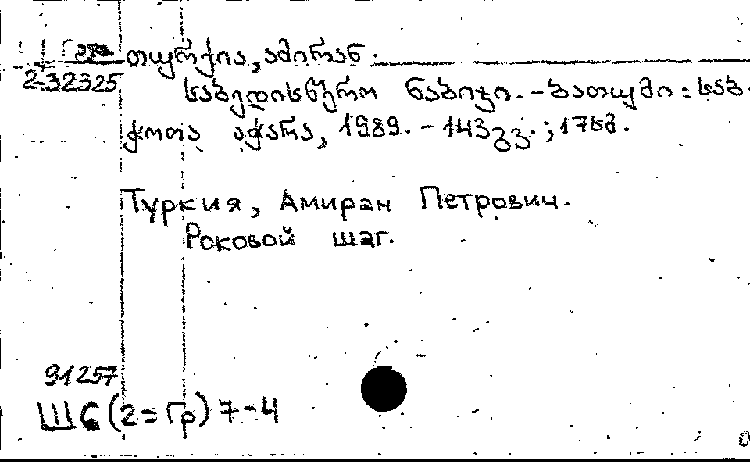 თურქია, ამირან.
232325
საბედისწერო ნაბიჯი. - ბათუმი : საბ.
ჭოთა აჭარა, 1989. - 143გვ. ; 17სმ.
Туркия, Амиран Петрович.
Роковой шаг.
91257
Ш6(2=Гр)7-4